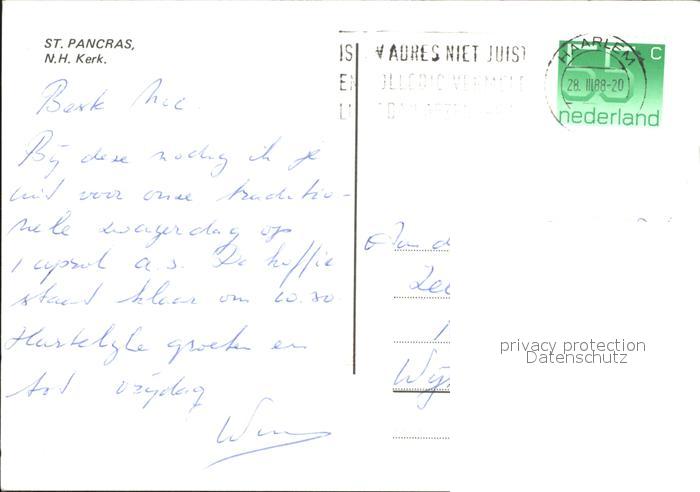 ST. PANCRAS,
N.H. Kerk.
IS UW ADRES NIET JUIST
EN VOLLEDIG VERMELD
HAARLEM
28. III 88-20
55 C
nederland
Beste
Bij deze nodig ik je
uit voor onze traditio-
nele zwagerdag op
1 april a.s. De koffie
staat klaar om 10.30.
Hartelijke groeten en
tot vrijdag
Wim
Aan d
privacy protection
Datenschutz
Wij